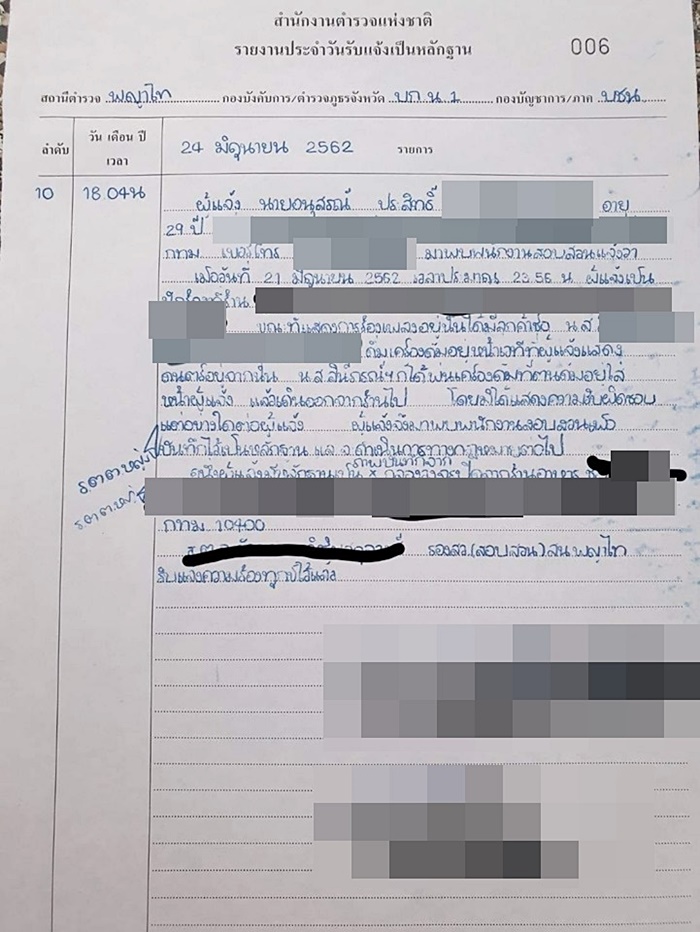 สำนักงานตำรวจแห่งชาติ
รายงานประจำวันรับแจ้งเป็นหลักฐาน
006
สถานีตำรวจ พญาไท กองบังคับการ/ตำรวจภูธรจังหวัด บก.น.1 กองบัญชาการ/ภาค บชน.
ลำดับ วัน เดือน ปี เวลา 24 มิถุนายน 2562 รายการ
10 18.04น ผู้แจ้ง นายอนุสรณ์ ประสิทธิ์ อายุ
29 ปี
กทม. เบอร์โทร มาพบพนักงานสอบสวนแจ้งว่า
เมื่อวันที่ 21 มิถุนายน 2562 เวลาประมาณ 23.56 น. ผู้แจ้งเป็น
ขณะที่แสดงการร้องเพลงอยู่นั้นได้มีลูกค้าชื่อ น.ส.
ดื่มเครื่องดื่มอยู่หน้าเวทีที่ผู้แจ้งแสดง
ดนตรีอยู่จากนั้น น.ส. ก็ได้พ่นเครื่องดื่มที่ตนดื่มอยู่ใส่
หน้าผู้แจ้ง แล้วเดินออกจากร้านไป โดยมิได้แสดงความรับผิดชอบ
แต่อย่างใดต่อผู้แจ้ง ผู้แจ้งจึงมาพบพนักงานสอบสวนเพื่อ
บันทึกไว้เป็นหลักฐาน และจะดำเนินการทางกฎหมายต่อไป
ร.ต.ต.หญิง
ภาพบันทึกจาก
กล้องวงจรปิดจากร้านอาหาร
กทม. 10400
รองสว.(สอบสวน) สน.พญาไท
รับแจ้งความร้องทุกข์ไว้แล้ว